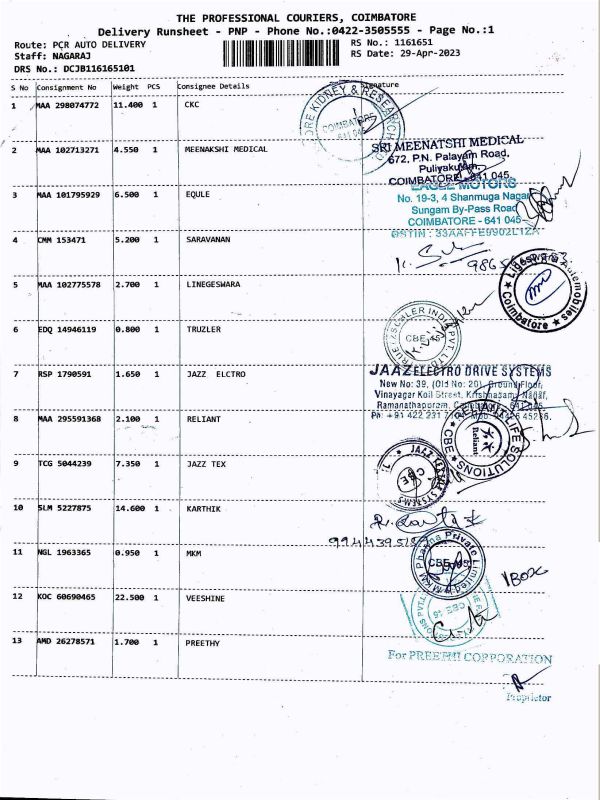 THE PROFESSIONAL COURIERS, COIMBATORE
Delivery Runsheet - PNP - Phone No.:0422-3505555 - Page No.:1
Route: PCR AUTO DELIVERY
RS No.: 1161651
Staff: NAGARAJ
RS Date: 29-Apr-2023
DRS No.: DCJB116165101
S No Consignment No Weight PCS Consignee Details Signature
1 MAA 298074772 11.400 1 CKC
KIDNEY & RESEARCH
COIMBATORE
641 045
2 MAA 102713271 4.550 1 MEENAKSHI MEDICAL
SRI MEENATSHI MEDICAL
672, P.N. Palayam Road,
Puliyakulam,
COIMBATORE - 641 045
3 MAA 101795929 6.500 1 EQULE
EAGLE MOTORS
No. 19-3, 4 Shanmuga Nagar
Sungam By-Pass Road
COIMBATORE - 641 045
GSTIN : 33AAFFE9902L1ZA
4 CMM 153471 5.200 1 SARAVANAN
5 MAA 102775578 2.700 1 LINEGESWARA
Lingeswara Automobiles
Coimbatore
6 EDQ 14946119 0.800 1 TRUZLER
CBE-45
7 RSP 1790591 1.650 1 JAZZ ELCTRO
JAAZ ELECTRO DRIVE SYSTEMS
New No: 39, (Old No: 20), Ground Floor,
Vinayagar Koil Street, Krishnasamy Nagar,
Ramanathapuram, Coimbatore - 641 045
Ph: +91 422 231
8 MAA 295591368 2.100 1 RELIANT
LIFE SOLUTIONS
CBE
Reliant
9 TCG 5044239 7.350 1 JAZZ TEX
JAZZ TEX SYSTEMS
CBE
10 SLM 5227875 14.600 1 KARTHIK
11 NGL 1963365 0.950 1 MKM
MKM Pharma Private Limited
CBE-45
12 KOC 60690465 22.500 1 VEESHINE
CBE
13 AMD 26278571 1.700 1 PREETHY
For PREETHI CORPORATION
Proprietor